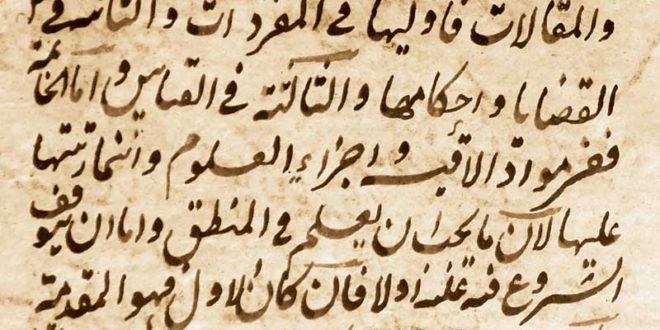 والمقالات فاوليها في المفردات والثانية في
القضايا واحكامها والثالثة في القياس واما الخاتمة
ففي مواد الاقيسة واجزاء العلوم وانما رتبتها
عليها لان ما يجب ان يعلم في المنطق واما ان يتوقف
الشروع فيه عليه اولا فان كان الاول فهو المقدمة